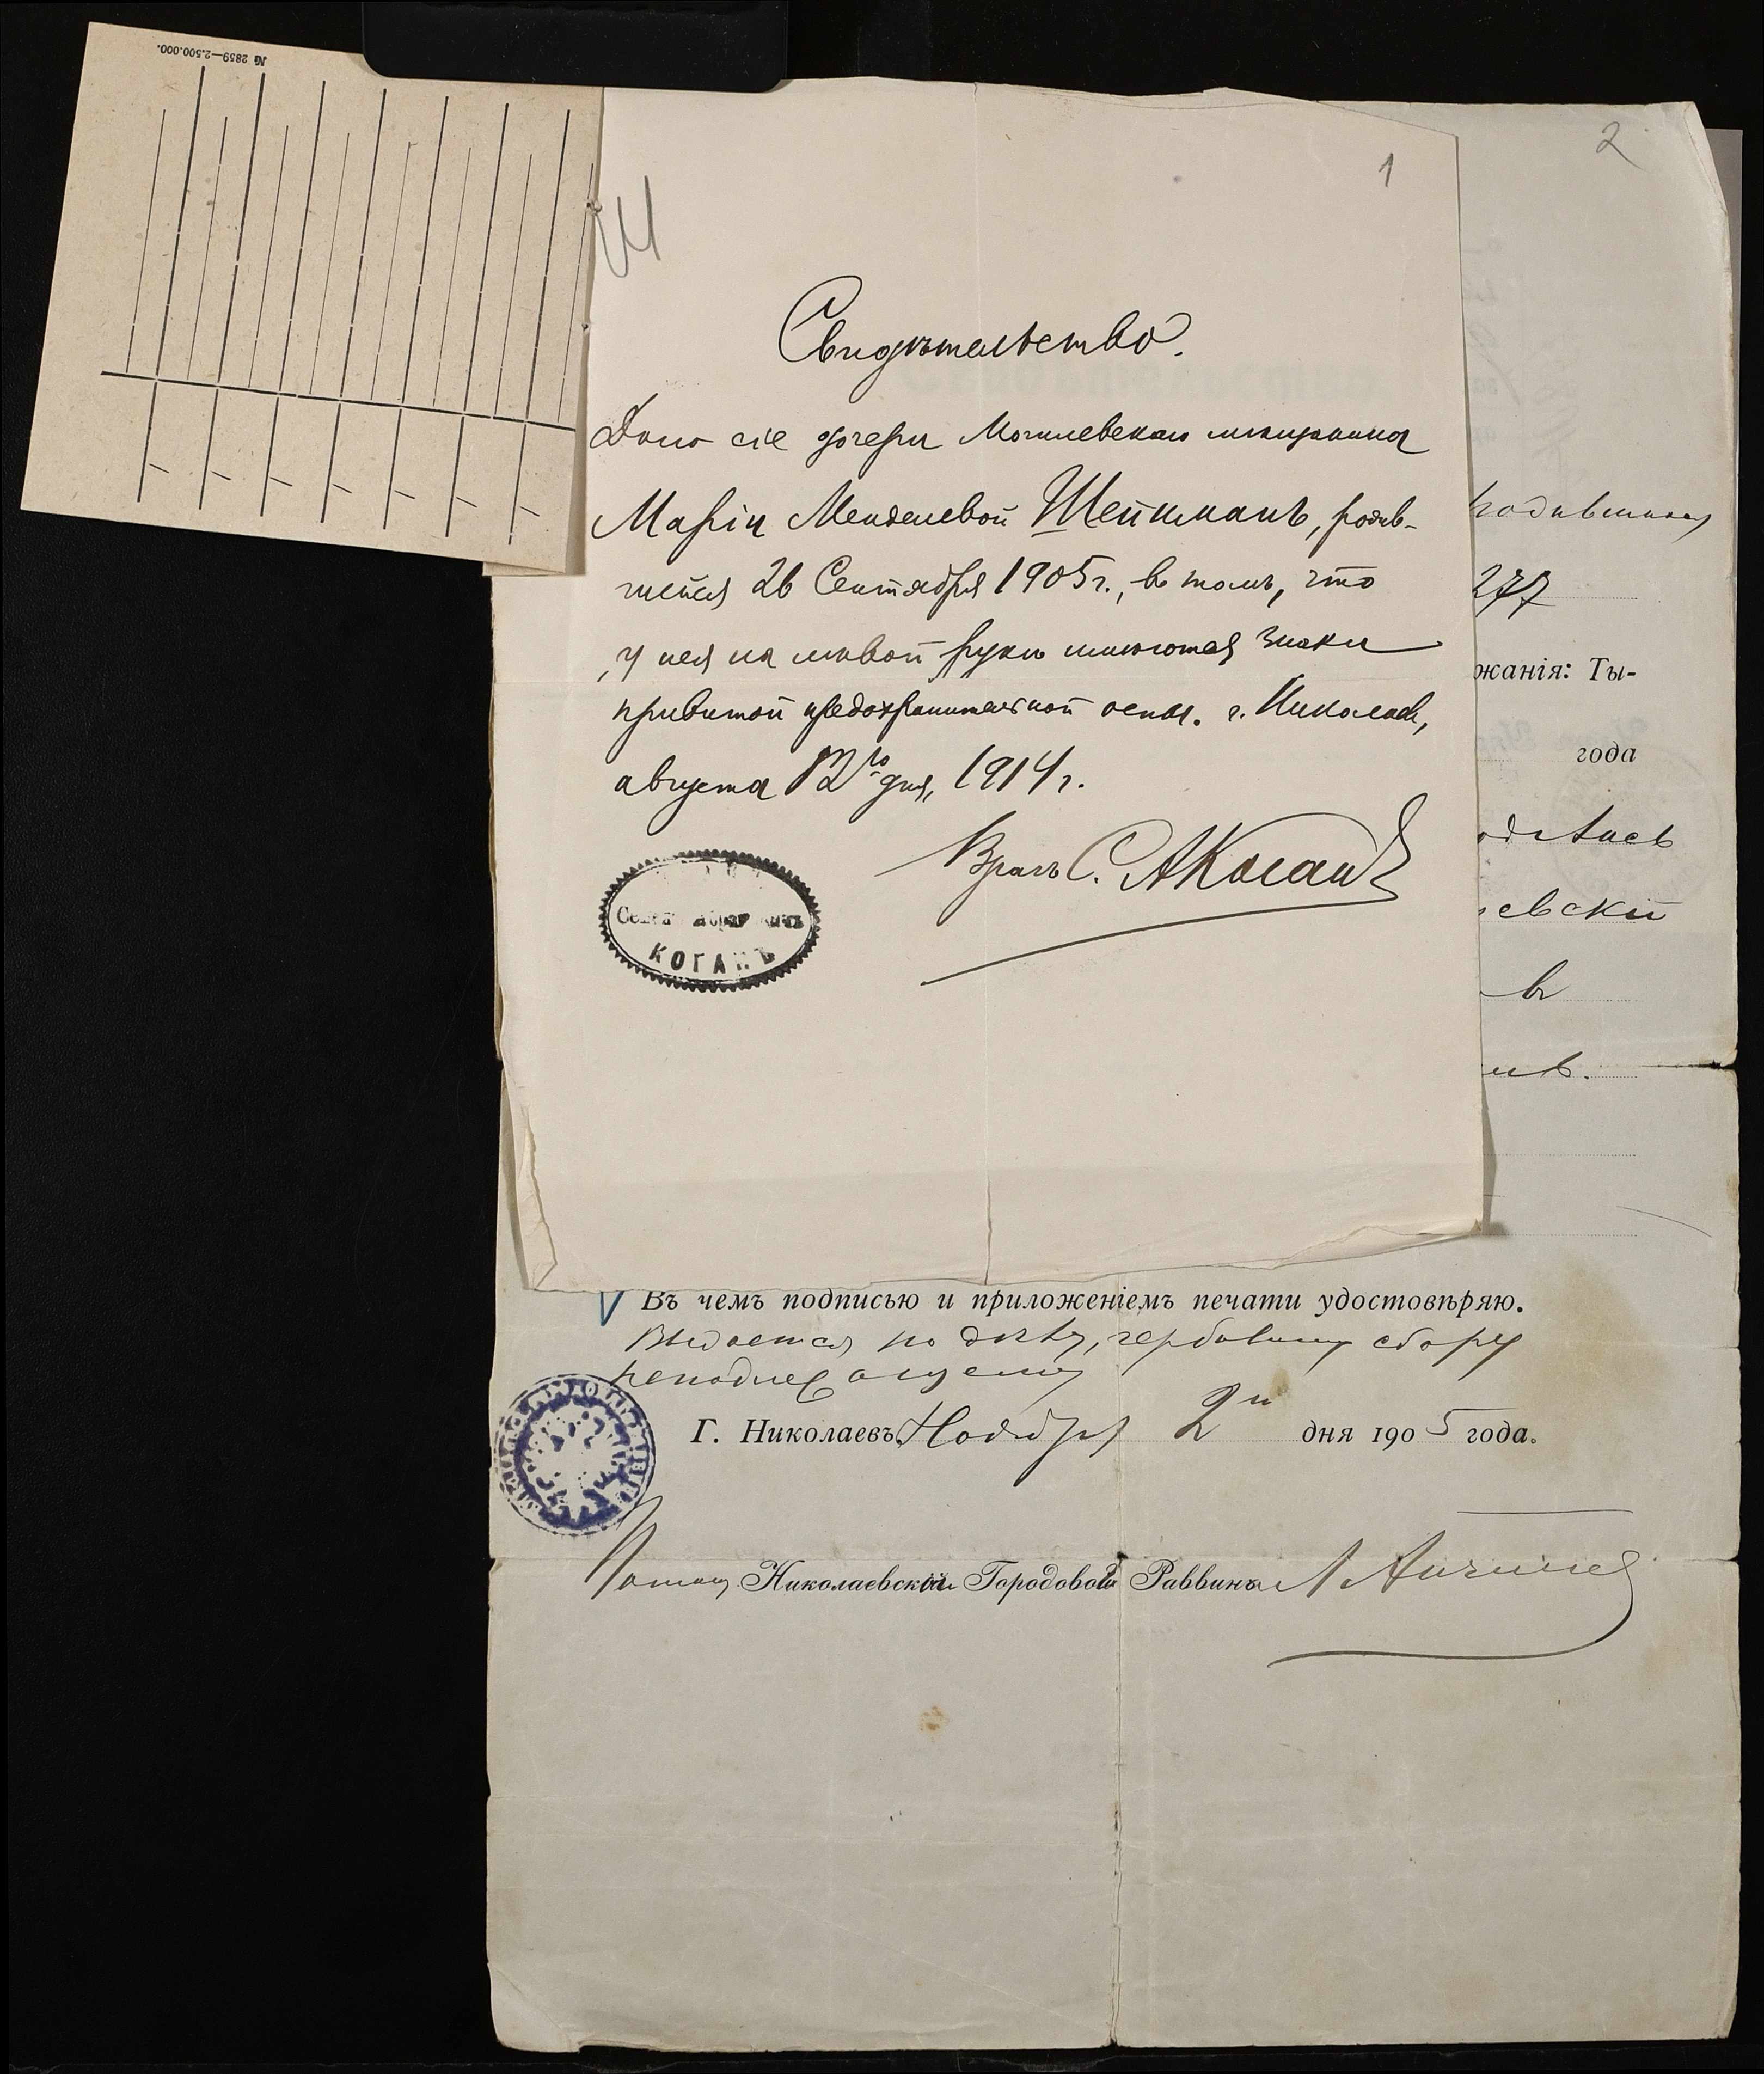 № 2859—2.500.000.
1
2
Свидѣтельство.
Дано сіе дочери Могилевскаго мѣщанина
Маріи Менделевой Шейнманъ, родив-
шейся 26 Сентября 1905 г., въ томъ, что
у нея на лѣвой рукѣ имѣются знаки
привитой предохранительной оспы. г. Николаевъ,
августа 12го дня, 1914 г.
Врачъ С. А Коганъ
КОГАНЪ
родившихся
277
жанія: Ты-
года
евскій
въ
Въ чемъ подписью и приложеніемъ печати удостовѣряю.
Выдается по дѣлу, гербовому сбору
неподлежащему
Г. Николаевъ, Ноября 2го дня 1905 года.
Николаевскій Городовой Раввинъ